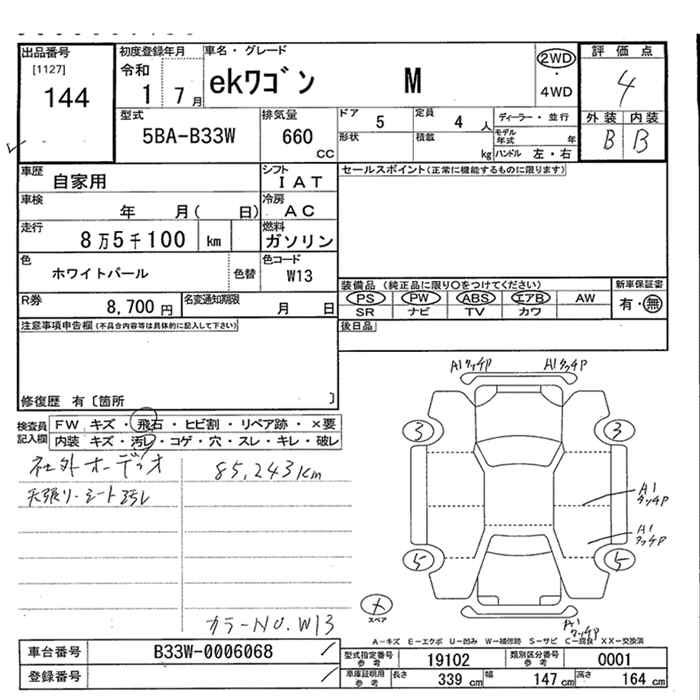 出品番号
[1127]
144
初度登録年月
令和
1 7月
車名・グレード
ekワゴン M
2WD
・
4WD
評価点
4
外装 内装
B B
型式
5BA-B33W
排気量
660
cc
ドア
5
形状
定員
4 人
積載
kg
ディーラー・並行
モデル年式 年
ハンドル 左・右
車歴
自家用
シフト
IAT
セールスポイント(正常に機能するものに限ります)
車検
年 月( 日)
冷房
AC
走行
8万5千100 km
燃料
ガソリン
色
ホワイトパール
色替
色コード
W13
装備品 (純正品に限り○をつけてください)
PS PW ABS エアB AW
SR ナビ TV カワ
新車保証書
有・無
R券
8,700円
名変通知期限
月 日
注意事項申告欄(不具合内容等は具体的に記入して下さい)
後日品
修復歴 有〔箇所 〕
検査員
記入欄
FW キズ・飛石・ヒビ割・リペア跡・×要
内装 キズ・汚レ・コゲ・穴・スレ・キレ・破レ
社外オーディオ
天張リ・シート汚レ
85,243km
カラーNO.W13
A1タッチP A1タッチP
3 3
A1
タッチP
A1
タッチP
5 5
スペア
A1
タッチP
A-キズ E-エクボ U-凹み W-補修跡 S-サビ C-腐食 XX-交換済
車台番号
B33W-0006068
登録番号
型式指定番号
参考
19102
類別区分番号
参考
0001
車庫証明用
参考
長さ 339 cm
幅 147 cm
高さ 164 cm